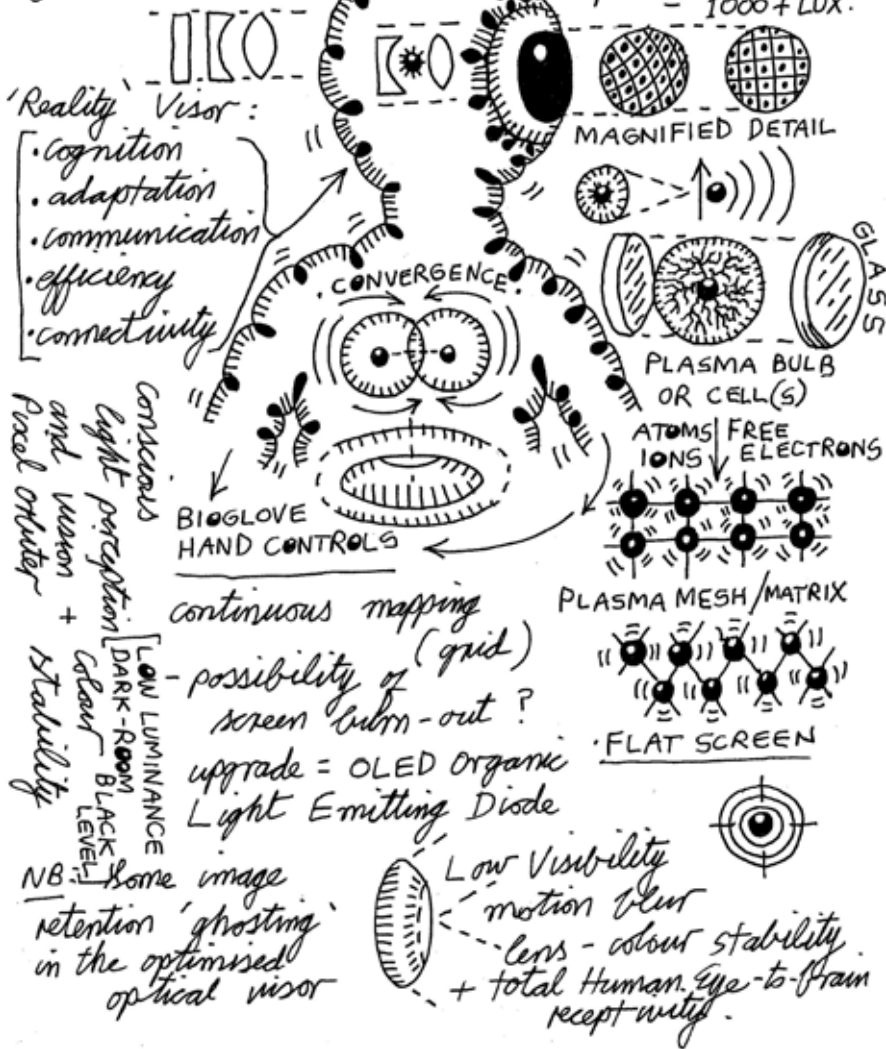 - 1000 + LUX.
'Reality' Visor :
• cognition
• adaptation
• communication
• efficiency
• connectivity
MAGNIFIED DETAIL
• CONVERGENCE •
GLASS
PLASMA BULB
OR CELL(S)
ATOMS FREE
IONS ELECTRONS
BIOGLOVE
HAND CONTROLS
PLASMA MESH/MATRIX
• FLAT SCREEN
Conscious
light perception
and vision +
Pixel orbiter
stability
[LOW LUMINANCE
DARK-ROOM
Colour BLACK
LEVEL]
continuous mapping
(grid)
- possibility of
screen burn-out ?
upgrade = OLED Organic
Light Emitting Diode
NB: Some image
retention 'ghosting'
in the optimised
optical visor
Low Visibility
motion blur
lens - colour stability
+ total Human Eye-to-brain
receptivity.